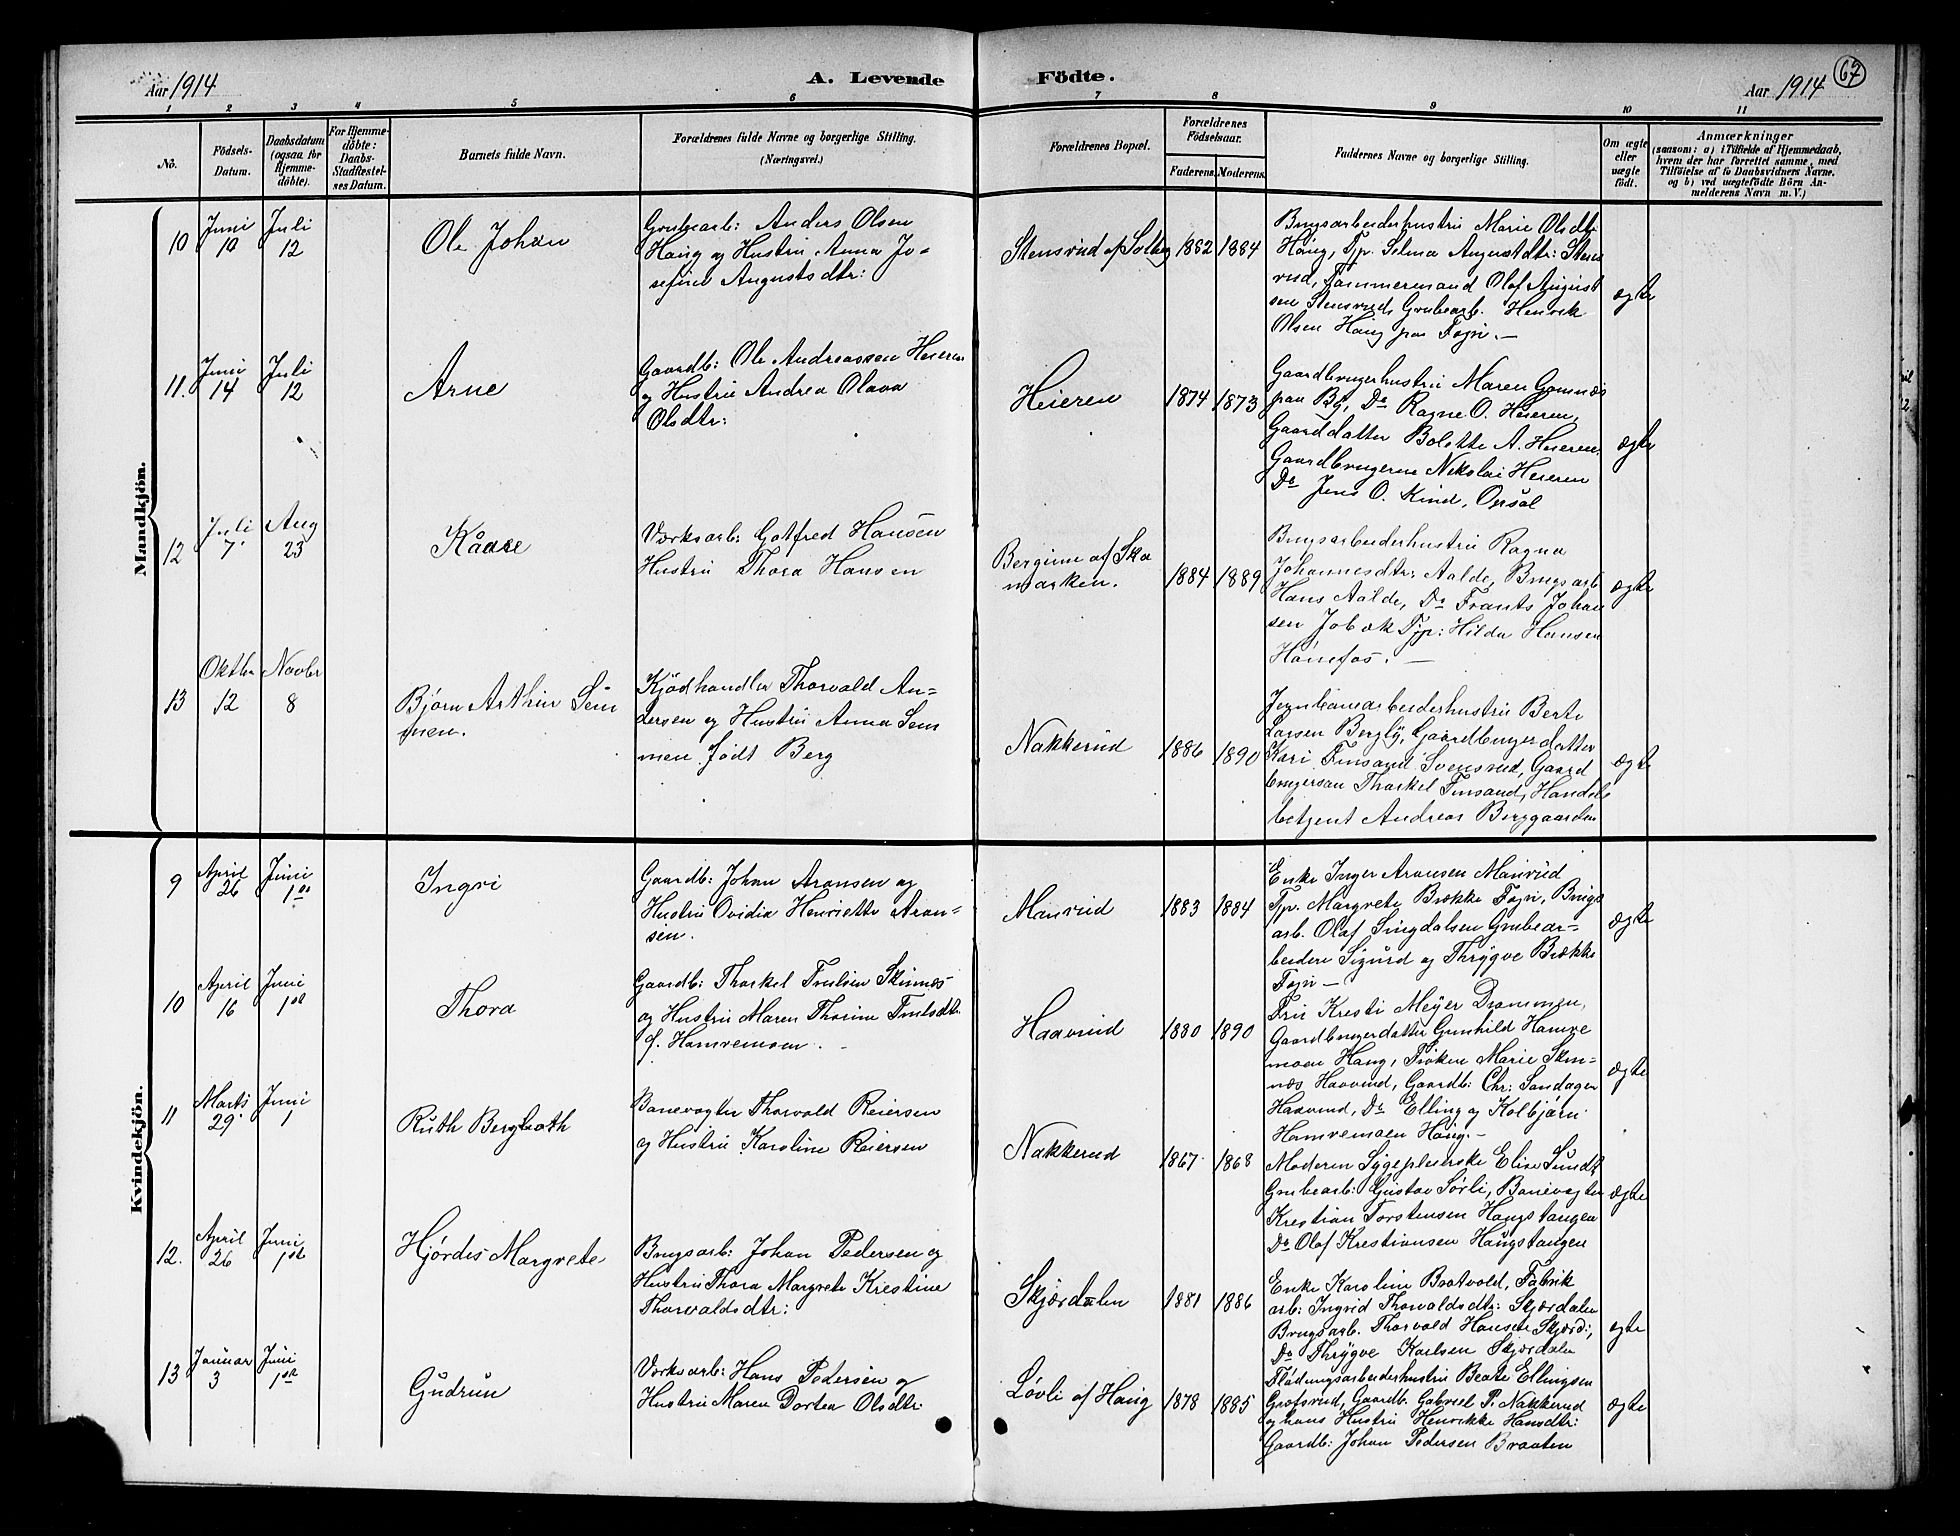 Aar 1914
A. Levende Födte.
Aar 1914
67
1 2 3 4 5 6 7 8 9 10 11
No.
Födsels-Datum.
Daabsdatum (ogsaa for Hjemme-döbte).
For Hjemme-döbte: Daabs-Stadfestel-ses Datum.
Barnets fulde Navn.
Forældrenes fulde Navne og borgerlige Stilling. (Næringsvei.)
Forældrenes Bopæl.
Forældrenes Födselsaar.
Faderens.
Moderens.
Faddernes Navne og borgerlige Stilling.
Om ægte eller uægte födt.
Anmærkninger
(saasom: a) i Tilfælde af Hjemmedaab,
hvem der har forrettet samme, med
Tilföielse af to Daabsvidners Navne,
og b) ved uægtefödte Börn An-
melderens Navn m. V.)
Mandkjön.
10
Juni 10
Juli 12
Ole Johan
Grubearb: Anders Olsen
Haug og Hustru Anna Jo-
sefine Augustsdtr:
Stensrud af Solberg
1882
1884
Brugsarbeiderhustru Marie Olsdtr
Haug, Tjp. Selma Augustdtr: Stens
rud, Tømmermand Olaf August
sen Stensrud, Grubearb. Henrik
Olsen Haug paa Tojn. —
ægte
11.
Juni 14
Juli 12
Arne
Gaardb: Ole Andreassen Heieren
og Hustru Andrea Olava
Olsdtr:
Heieren
1874
1873
Gaardbrugerhustru Maren Gomnæs
paa By, Do Ragne O. Heieren,
Gaarddatter Bolette A. Heieren,
Gaardbrugerne Nikolai Heieren
Do Jens O. Kind, Opsal
ægte
12
Juli 7.
Aug 23
Kåare
Værksarb: Gotfred Hansen
Hustru Thora Hansen
Bergene af Ska
marken.
1884
1889
Brugsarbeiderhustru Ragna
Johannesdtr: Aalde, Brugsarb
Hans Aalde, Do Frants Johan
sen Jobæk Tjp: Hilda Hansen
Hønefos. —
ægte
13
Oktbr 12
Novbr 8
Bjørn Arthur Sem
men.
Kjødhandler Thorvald An=
dersen og Hustru Anna Sem
men født Berg
Nakkerud
1886
1890
Jernbanearbeiderhustru Berte
Larsen Bergly, Gaardbrugerdatter
Kari Finsand Svensrud, Gaard
brugersøn Thorkel Finsand, Handels
betjent Andreas Berggaarden
ægte
Kvindekjön.
9
April 26
Juni 1ste
Ingri
Gaardb: Johan Aronsen og
Hustru Ovidia Henriette Aron=
sen.
Manrud
1883
1884
Enke Inger Aronsen Manrud
Tjp. Margrete Brekke Tojn, Brugs
arb. Olaf Lingdalsen Grubear-
beidere Sigurd og Thrygve Brekke
Tojn —
ægte
10
April 16
Juni 1ste
Thora
Gaardb: Thorkel Truelsen Skinnæs
og Hustru Maren Thorine Truelsdtr.
f. Hamremoen. —
Haavrud
1880
1890
Fru Kresti Meyer Drammen,
Gaardbrugerdatter Gunhild Hamre
moen Haug, Frøken Marie Skin=
næs Haavrud, Gaardb: Chr: Sandager
Haavrud, Do Elling og Kolbjørn
Hamremoen Haug. —
ægte
11
Marts 29.
Juni 1
Ruth Bergljoth
Banevogter Thorvald Reiersen
og Hustru Karoline Reiersen
Nakkerud
1867
1868
Moderen Sygepleierske Elise Sundt
Grubearb: Gustav Sørli, Banevogter
Krestian Torstensen Haugstangen
Do Olaf Krestiansen Haugstangen
ægte
12.
April 26
Juni 1ste
Hjørdis Margrete
Brugsarb: Johan Pedersen og
Hustru Thora Margrete Krestine
Thorvaldsdtr:
Skjærdalen
1881
1886
Enke Karoline Bratvold, Fabrik
arb: Ingrid Thorvaldsdtr: Skjærdalen
Brugsarb. Thorvald Hansen Skjærd:,
Do Thrygve Karlsen Skjærdalen
ægte
13
Januar 3
Juni 1ste
Gudrun
Værksarb: Hans Pedersen og
Hustru Maren Dortea Olsdtr:
Løvli af Haug
1878
1885
Flødningsarbeiderhustru Beate Ellingsen
Grøfsrud, Gaardb. Gabriel P. Nakkerud
og hans Hustru Henrikke Hansdtr:
Gaardb: Johan Pedersen Braaten
ægte